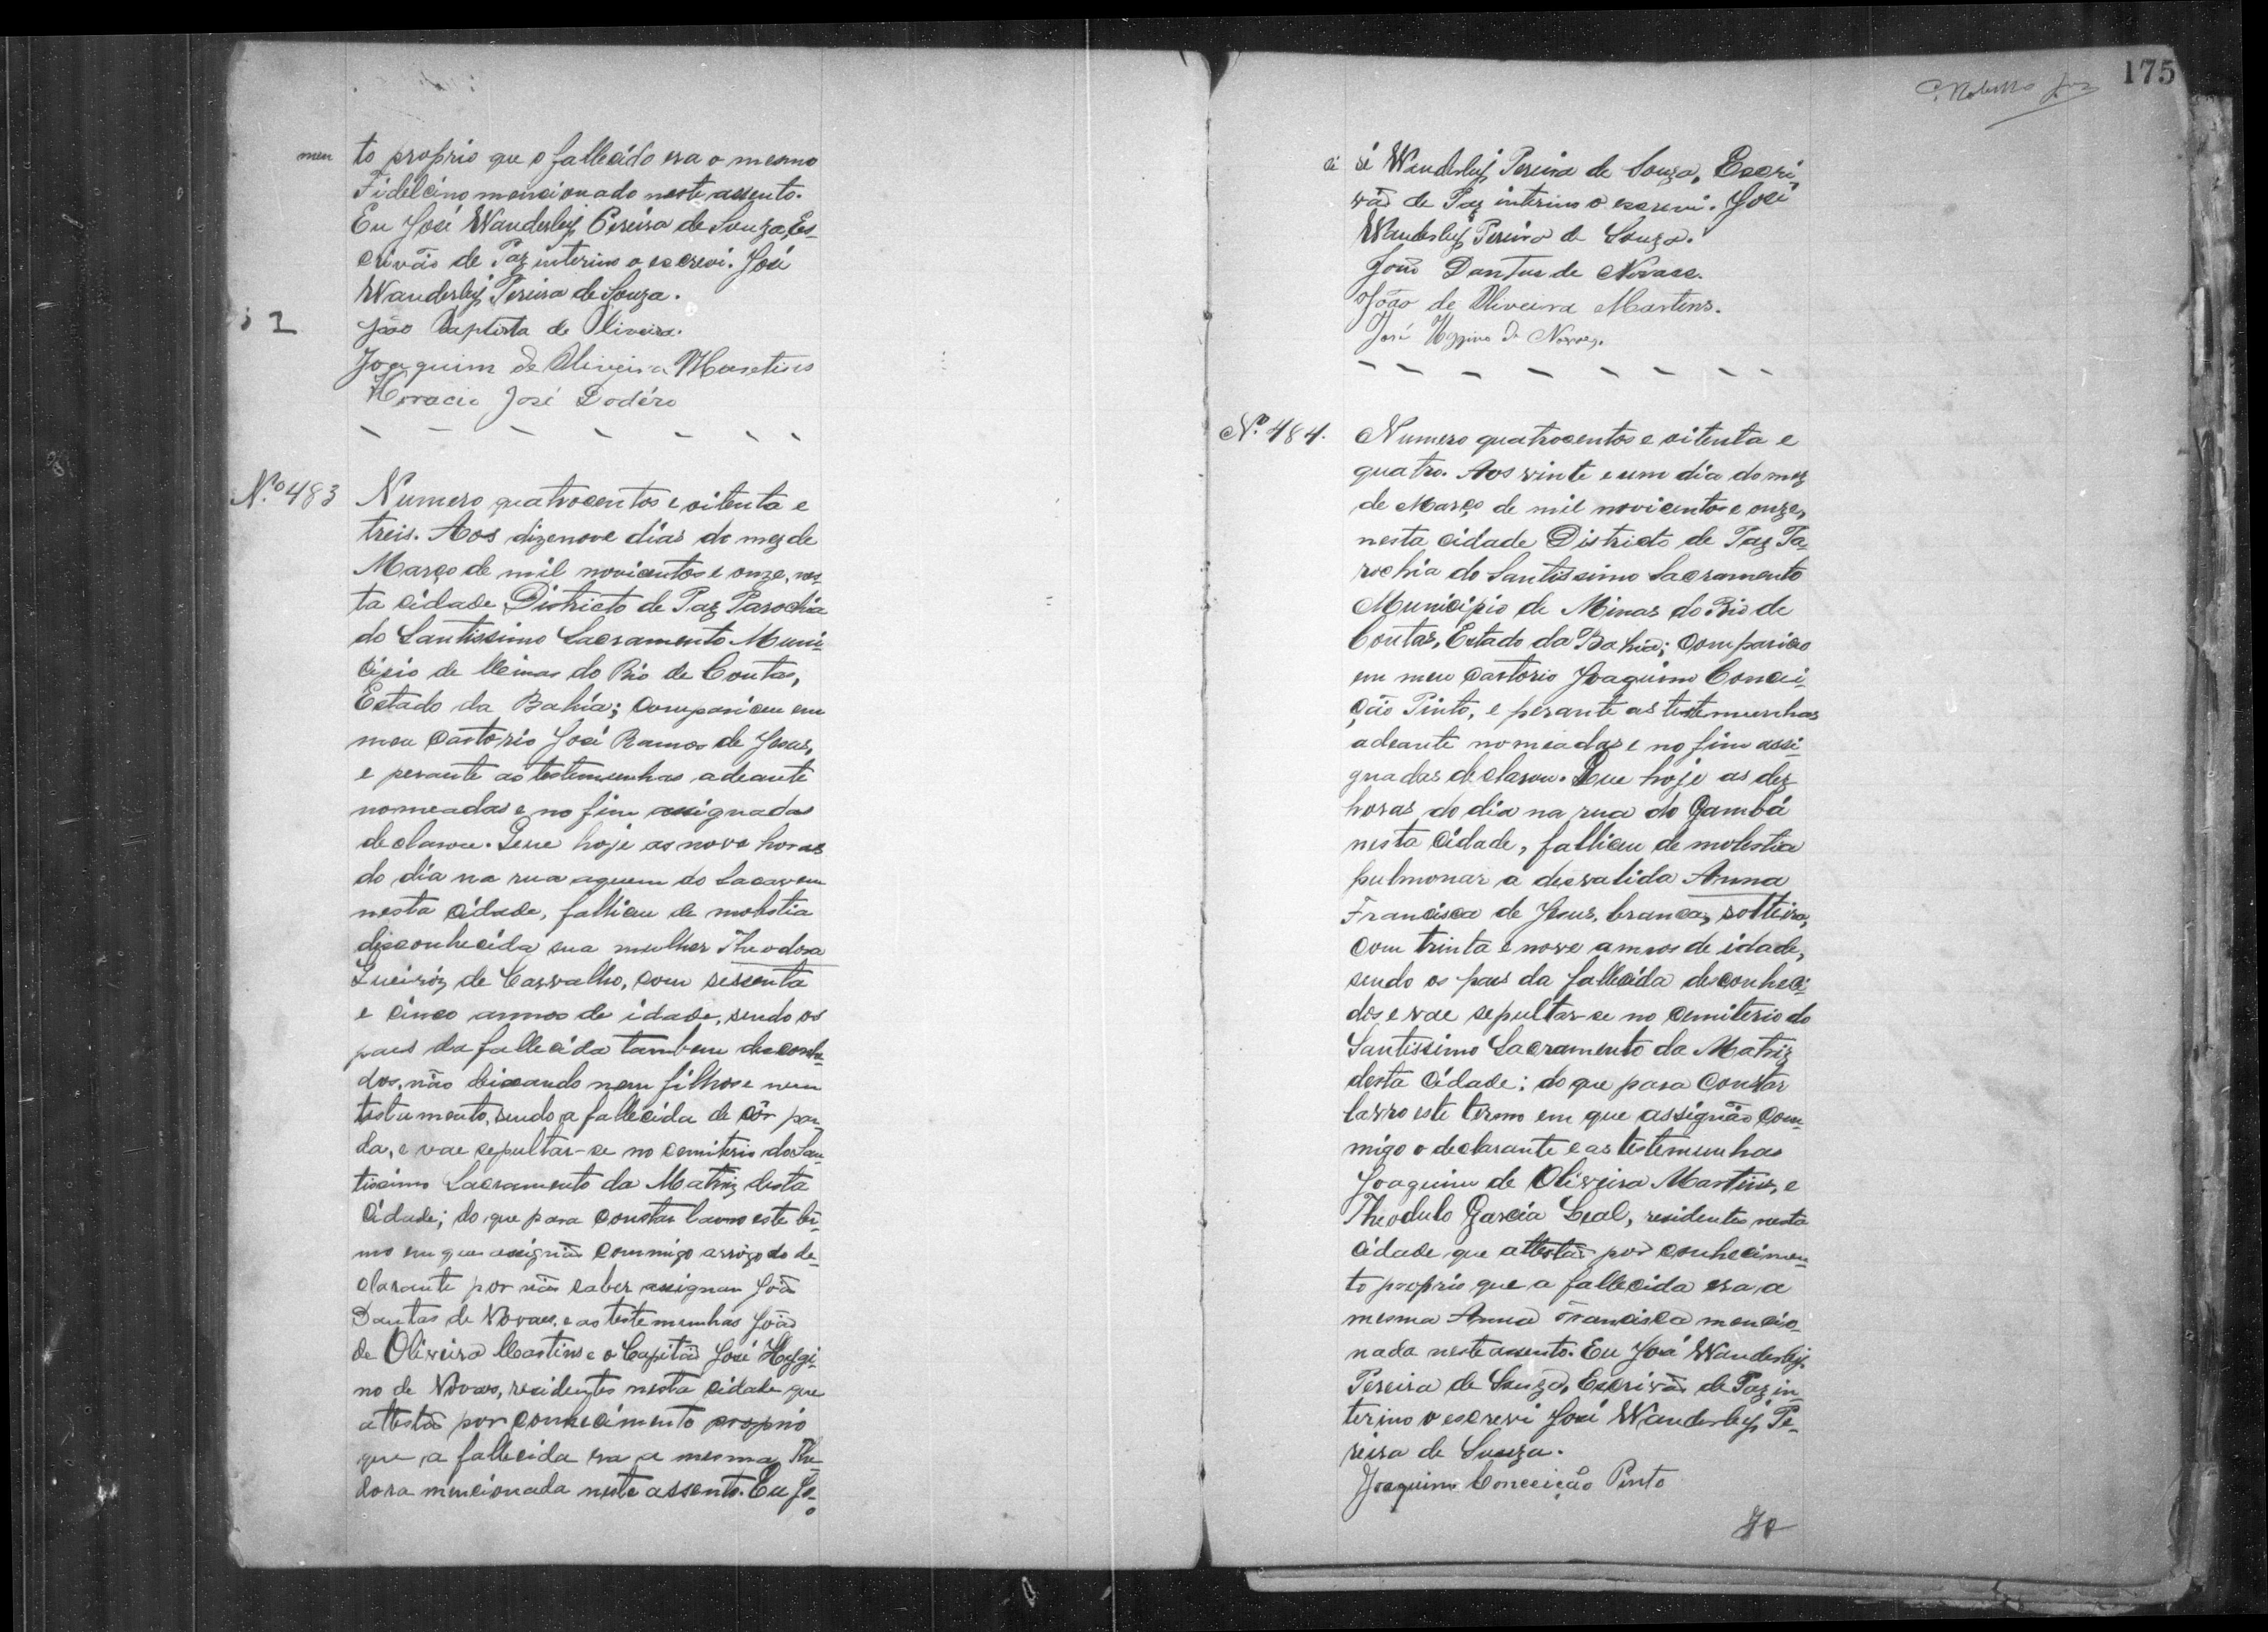 men to proprio que o fallecido era o mesmo
Fidelcino mencionado neste assento.
Eu José Wanderley Pereira de Souza, Es-
crivão de Paz interino o escrevi. José
Wanderley Pereira de Souza.
João Baptista de Oliveira.
Joaquim de Oliveira Martins
Horacio José Lodéro
N.º 483 Numero quatrocentos e oitenta e
treis. Aos dizenove dias do mez de
Março de mil novicentos e onze, nes-
ta cidade, Districto de Paz Parochia
do Santissimo Sacramento Muni-
cipio de Minas do Rio de Contas,
Estado da Bahia; compariceu em
meu Cartorio José Ramos de Jesus,
e perante as testemunhas adeante
nomeadas e no fim assignadas
declarou. Que hoje as nove horas
do dia na rua aquem do
nesta cidade, falliceu de molestia
desconhecida sua mulher Theodora
Queiróz de Carvalho, com sessenta
e cinco annos de idade, sendo os
paes da fallecida tambem desconhe-
dos, não deixando nem filhos e nem
testamento, sendo a fallecida de côr par-
da, e vae sepultar-se no cemiterio do San-
tissimo Sacramento da Matriz desta
Cidade; do que para constar lavro este ter-
mo em que assignão commigo arrôgo do de-
clarante por não saber assignar João
Dantas de Novaes, e as testemunhas João
de Oliveira Martins e o Capitão José Hygi-
no de Novaes, residentes nesta cidade que
attestão por conhecimento proprio
que a fallecida era a mesma Theo-
dora mencionada neste assento. Eu Jo-
175
sé Wanderley Pereira de Souza, Escri-
vão de Paz interino o escrevi. José
Wanderley Pereira de Souza.
João Dantas de Novaes.
João de Oliveira Martins.
José Hygino de Novaes.
N.º 484. Numero quatrocentos e oitenta e
quatro. Aos vinte e um dia do mez
de Março de mil novicentos e onze,
nesta cidade Districto de Paz Pa-
rochia do Santissimo Sacramento
Municipio de Minas do Rio de
Contas, Estado da Bahia; compariceo
em meu cartorio Joaquim Concei-
ção Pinto, e perante as testemunhas
adeante nomeadas e no fim assi-
gnadas declarou. Que hoje as dez
horas do dia na rua do Gambá
nesta Cidade, falliceu de molestia
pulmonar a desvalida Anna
Francisca de Jesus, branca, solteira,
com trinta e nove annos de idade,
sendo os paes da fallecida desconheci-
dos e vae sepultar-se no cemiterio do
Santissimo Sacramento da Matriz
desta Cidade; do que para constar
lavro este termo em que assignão com-
migo o declarante e as testemunhas
Joaquim de Oliveira Martins, e
Theodulo Garcia Leal, residentes nesta
Cidade que attestão por conhecimen-
to proprio que a fallecida era a
mesma Anna Francisca mencio-
nada neste assento. Eu José Wanderley
Pereira de Souza, Escrivão de Paz in
terino o escrevi José Wanderley Pe-
reira de Souza.
Joaquim Conceição Pinto